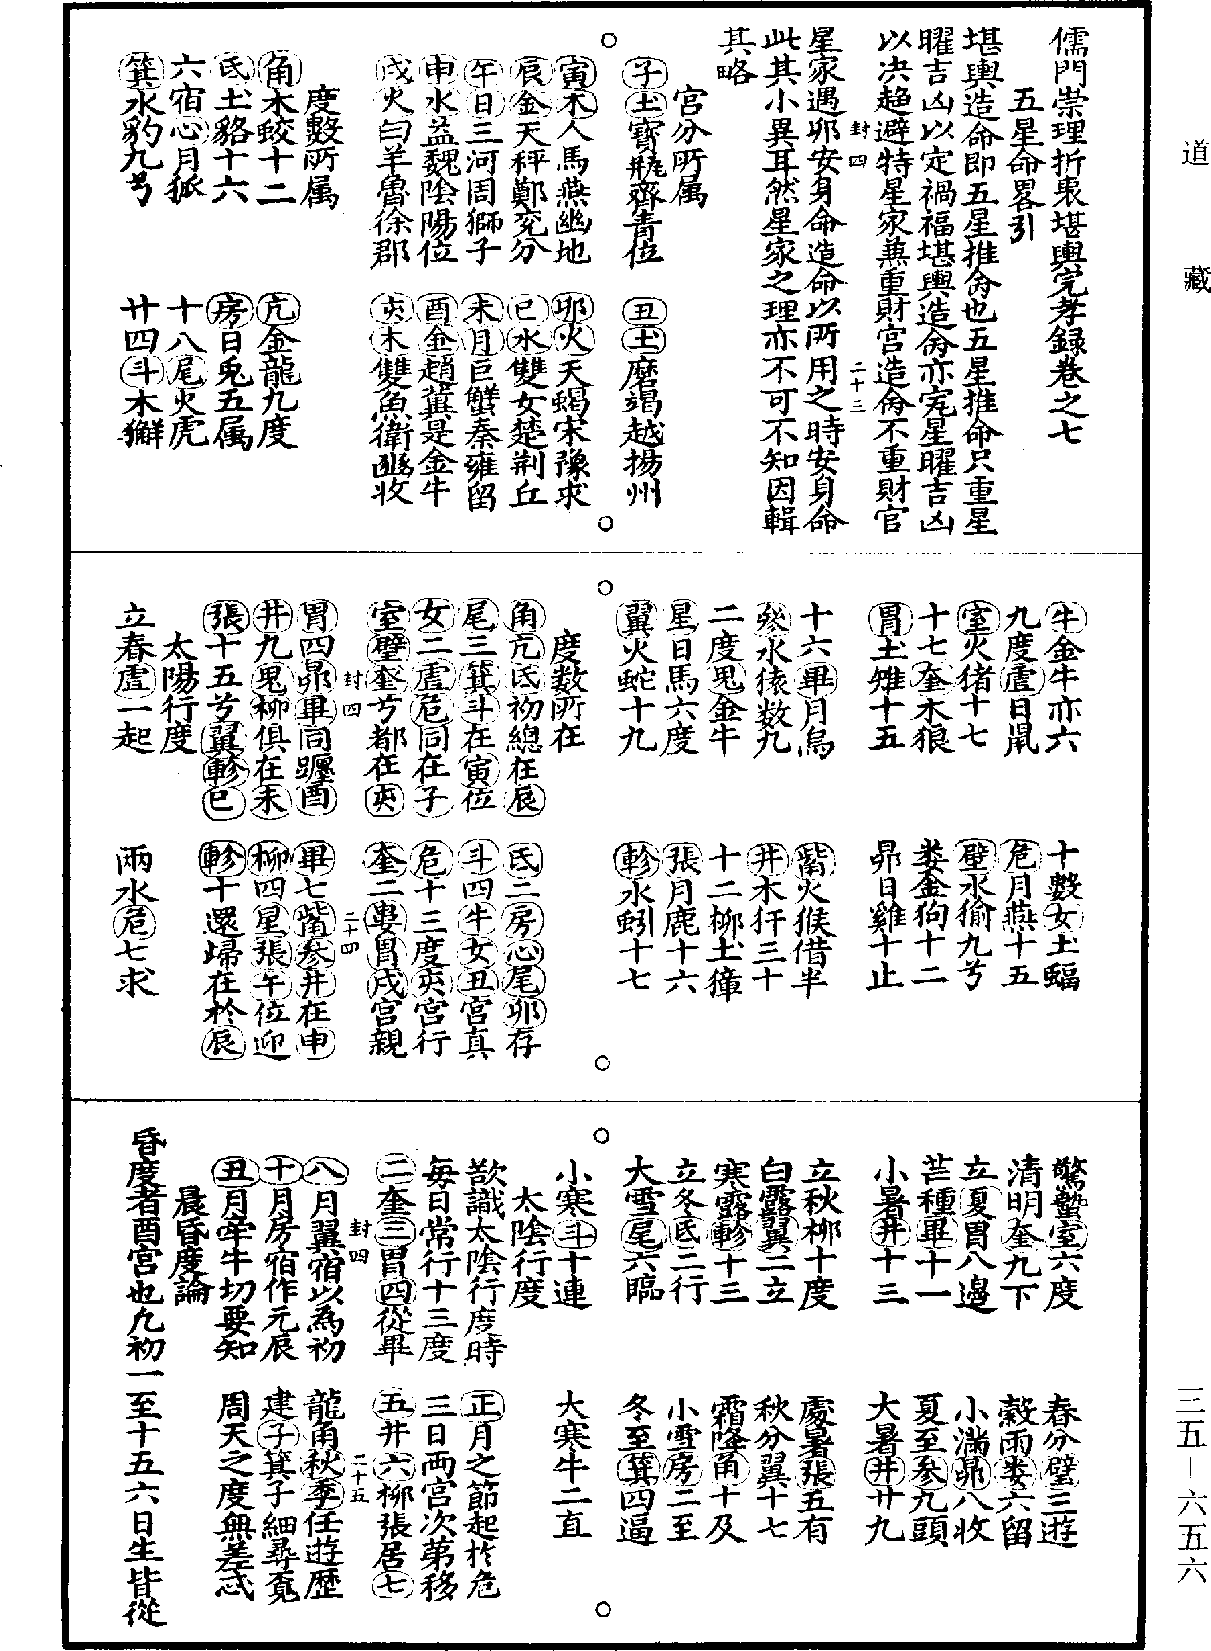 道藏
三五－六五六
儒門崇理折衷堪輿完孝録卷之七
五星命畧引
堪輿造命即五星推命也五星推命只重星
曜吉凶以定禍福堪輿造命亦完星曜吉凶
以决趨避特星家兼重財官造命不重財官
封四　二十三
星家遇卯安身命造命以所用之時安身命
此其小異耳然星家之理亦不可不知因輯
其略
宮分所属
子土寶瓶齊青位　丑土磨竭越揚州
寅木人馬燕幽地　卯火天蝎宋豫求
辰金天秤鄭兖分　巳水雙女楚荆丘
午日三河周獅子　未月巨蟹秦雍留
申水益魏陰陽位　酉金趙冀是金牛
戌火白羊魯徐郡　亥木雙魚衛豳收
度數所属
角木蛟十二　亢金龍九度
氐土貉十六　房日兎五属
六宿心月狐　十八尾火虎
箕水豹九兮　廿四斗木獬
牛金牛亦六　十數女土蝠
九度虚日鼠　危月燕十五
室火猪十七　壁水㺄九兮
十七奎木狼　娄金狗十二
胃土雉十五　昴日雞十止
十六畢月烏　觜火猴借半
参水猿数九　井木犴三十
二度鬼金牛　十二柳土獐
星日馬六度　張月鹿十六
翼火蛇十九　軫水蚓十七
度数所在
角亢氐初總在辰　氐二房心尾卯存
尾三箕斗在寅位　斗四牛女丑宮真
女二虚危同在子　危十三度亥宮行
室壁奎兮都在亥　奎二婁胃戌宮親
封四　二十四
胃四昴畢同躔酉　畢七觜参井在申
井九鬼柳俱在未　柳四星張午位迎
張十五兮翼軫巳　軫十還歸在於辰
太陽行度
立春虚一起　雨水危七求
驚蟄室六度　春分壁三遊
清明奎九下　穀雨娄六留
立夏胃八邊　小滿昴八收
芒種畢十一　夏至参九頭
小暑井十三　大暑井廿九
立秋柳十度　處暑張五有
白露翼二立　秋分翼十七
寒露軫十三　霜降角十及
立冬氐二行　小雪房二至
大雪尾六臨　冬至箕四逼
小寒斗十連　大寒牛二直
太陰行度
欲識太陰行度時　正月之節起於危
毎日常行十三度　三日兩宮次第移
二奎三胃四從畢　五井六柳張居七
封四　二十五
八月翼宿以為初　龍角秋季任遊歷
十月房宿作元辰　建子箕子細尋覔
丑月牵牛切要知　周天之度無差忒
晨昏度論
昏度者酉宮也九初一至十五六日生皆從